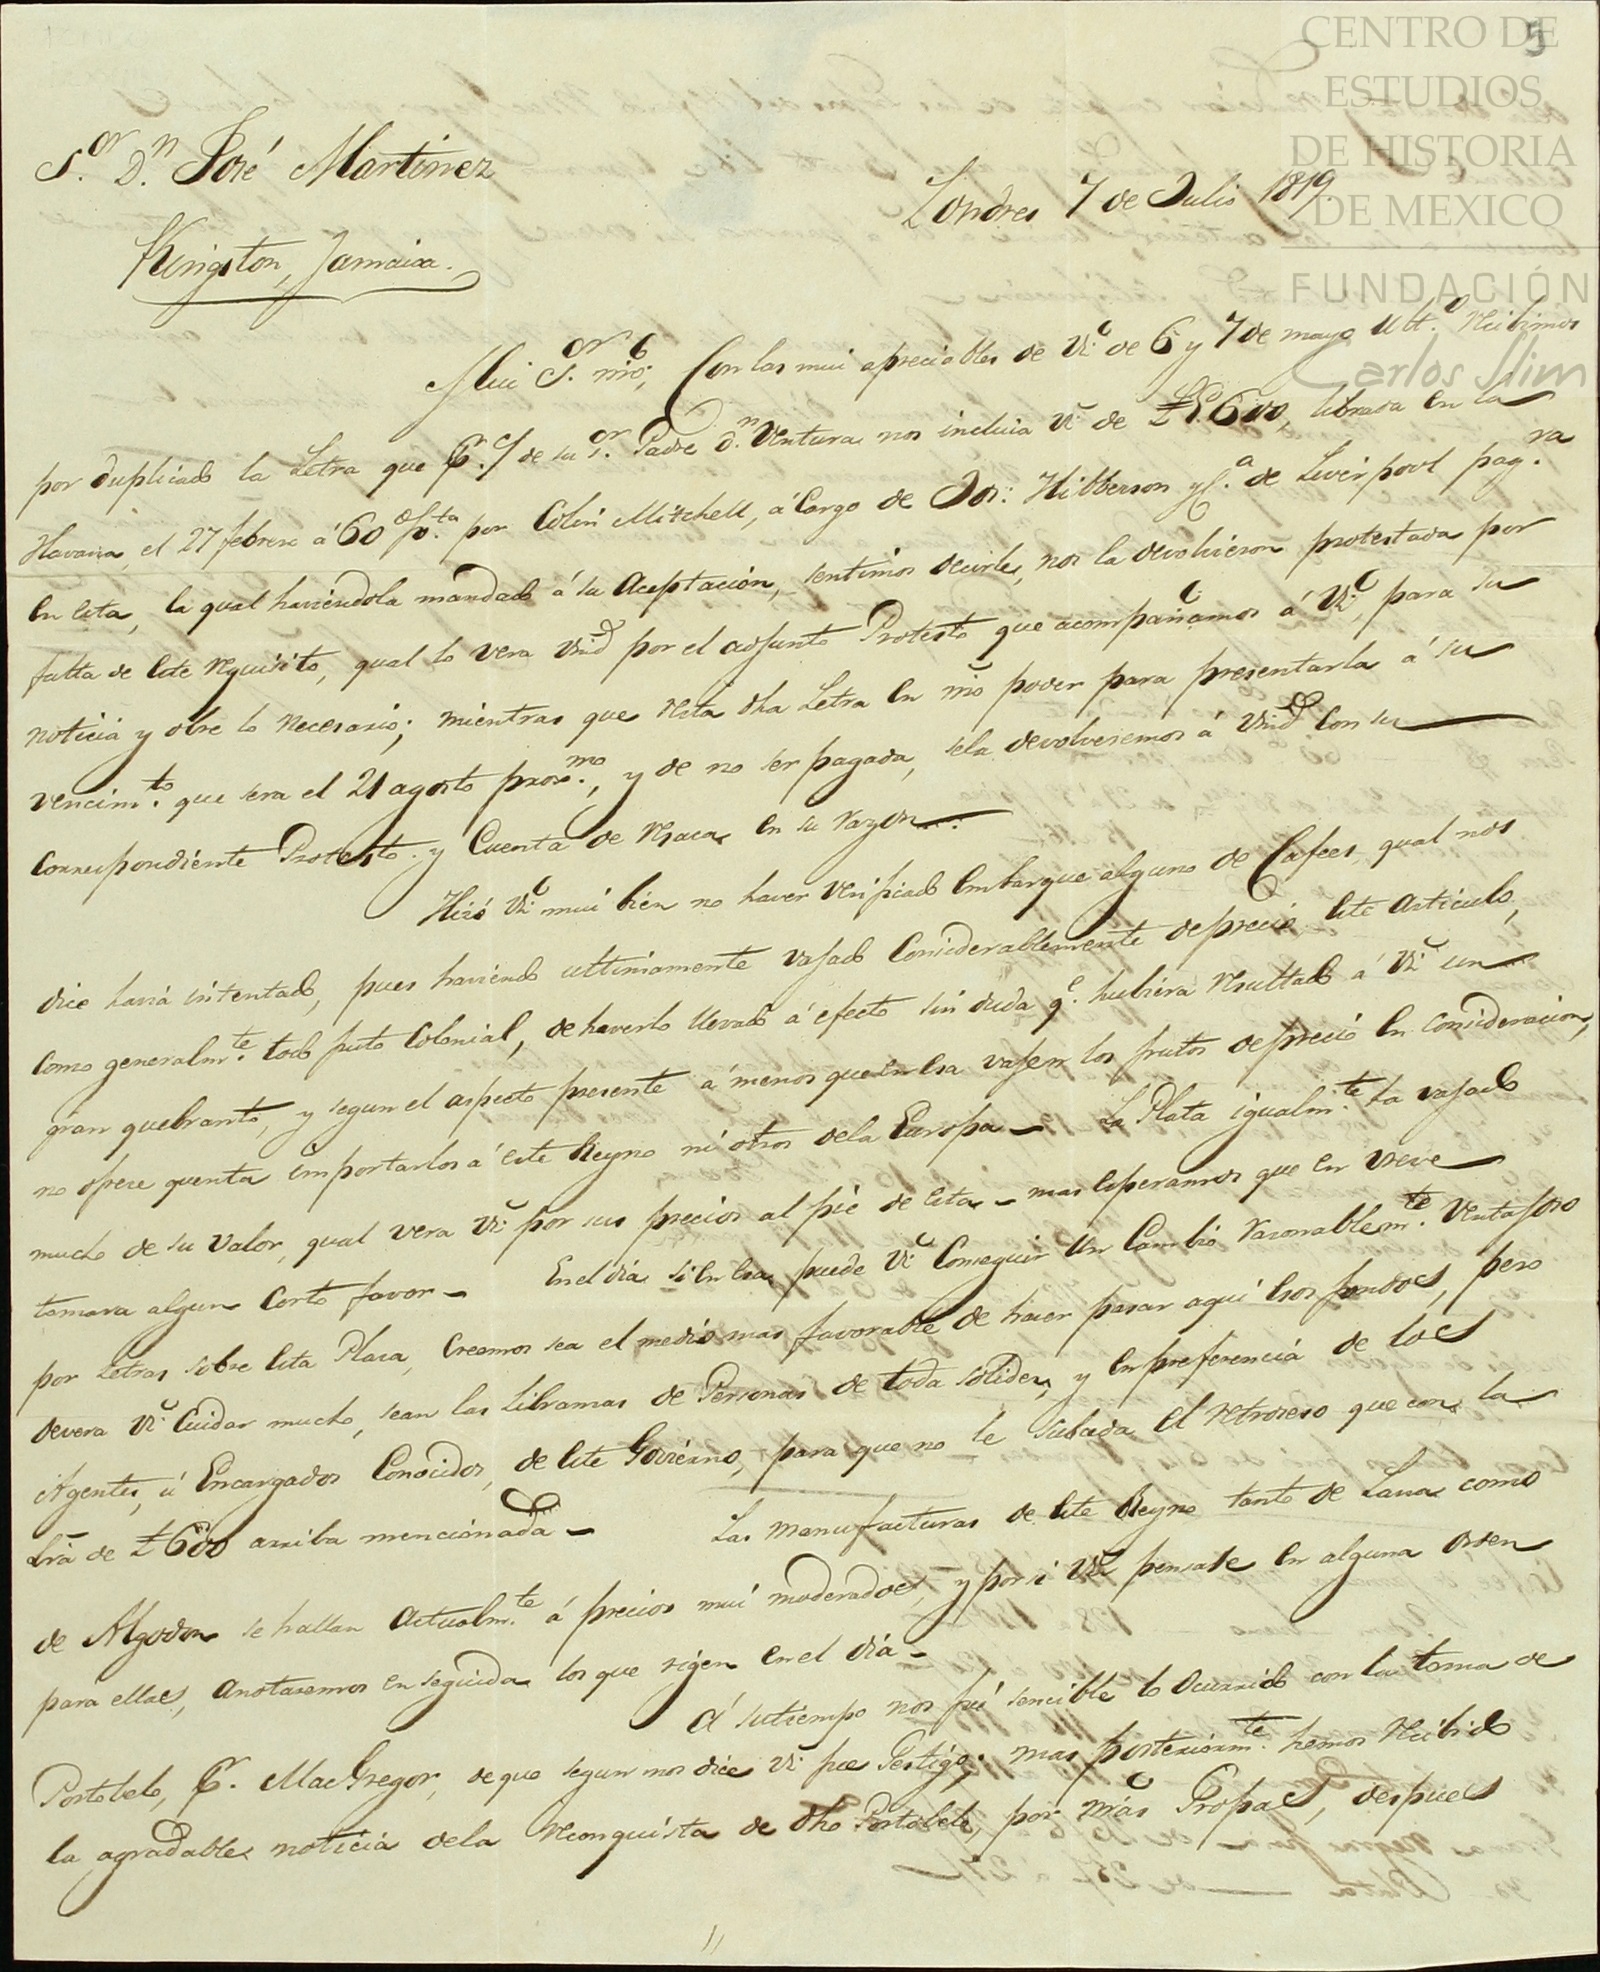 5
CENTRO DE
ESTUDIOS
DE HISTORIA
DE MEXICO
FUNDACIÓN
Carlos Slim
S.or D.n José Martinez
Londres 7 de Julio 1819.
Kingston, Jamaica.
Mui S.or mio; Con las mui apreciables de Vm. de 6 y 7 de mayo Ult.o recibimos
por duplicado la Letra que p.r c/ de su S.or Padre d.n Ventura nos incluia Vm. de £600, librada en la
Havana, el 27 febrero á 60 d/v.ta por Colin Mitchell, á Cargo de Jos: Hibberson y C.a de Liverpool pag.ra
en esta, la qual haviendola mandado á su Aceptación, sentimos decirle, nos la devolvieron protestada por
falta de este requisito, qual lo vera Vmd por el adjunto Protesto que acompañamos á Vm., para su
noticia y obre lo necesario; mientras que resta dha Letra en nro poder para presentarla á su
vencim.to que sera el 21 agosto prox.mo, y de no ser pagada, sela devolveremos á Vmd con su
correspondiente Protesto y Cuenta de resaca en su razon.
Hizo Vm. mui bien no haver verificado embarque alguno de Cafees, qual nos
dice havia intentado, pues haviendo ultimamente vajado Considerablemente de precio este articulo,
como generalm.te todo fruto Colonial, de haverlo llevado á efecto sin duda q.e hubiera resultado á Vm. un
gran quebranto, y segun el aspecto presente á menos que en esa vajen los frutos de precio en consideracion,
no ofrece quenta importarlos á este Reyno ni otros dela Europa - La Plata igualm.te ha vajado
mucho de su valor, qual vera Vm. por sus precios al pie de esta - mas esperamos que en breve
tomara algun corto favor - En el dia si en esa puede Vm. Conseguir Un Cambio razonablem.te Ventajoso
por Letras sobre esta Plaza, creemos sea el medio mas favorable de hacer pasar aqui esos fondos, pero
devera Vm. Cuidar mucho, sean las Libranzas de Personas de toda solidez, y en preferencia de los
Agentes, ú Encargados Conocidos, de este Govierno, para que no le suceda el retroceso que con la
Lra de £600 arriba mencionada - Las manufacturas de este Reyno tanto de Lana como
de Algodon se hallan Actualm.te á precios mui moderados, y por si Vm. pensase en alguna orden
para ellas, anotaremos en seguida los que rigen en el dia -
A' sutiempo nos fué sencible lo Ocurrido con la toma de
Portobelo, p.r MacGregor, de que segun nos dice Vm. fue Testigo; mas posteriorm.te hemos recibido
la agradable noticia dela reconquista de dho Portobelo, por nras Tropas, despues